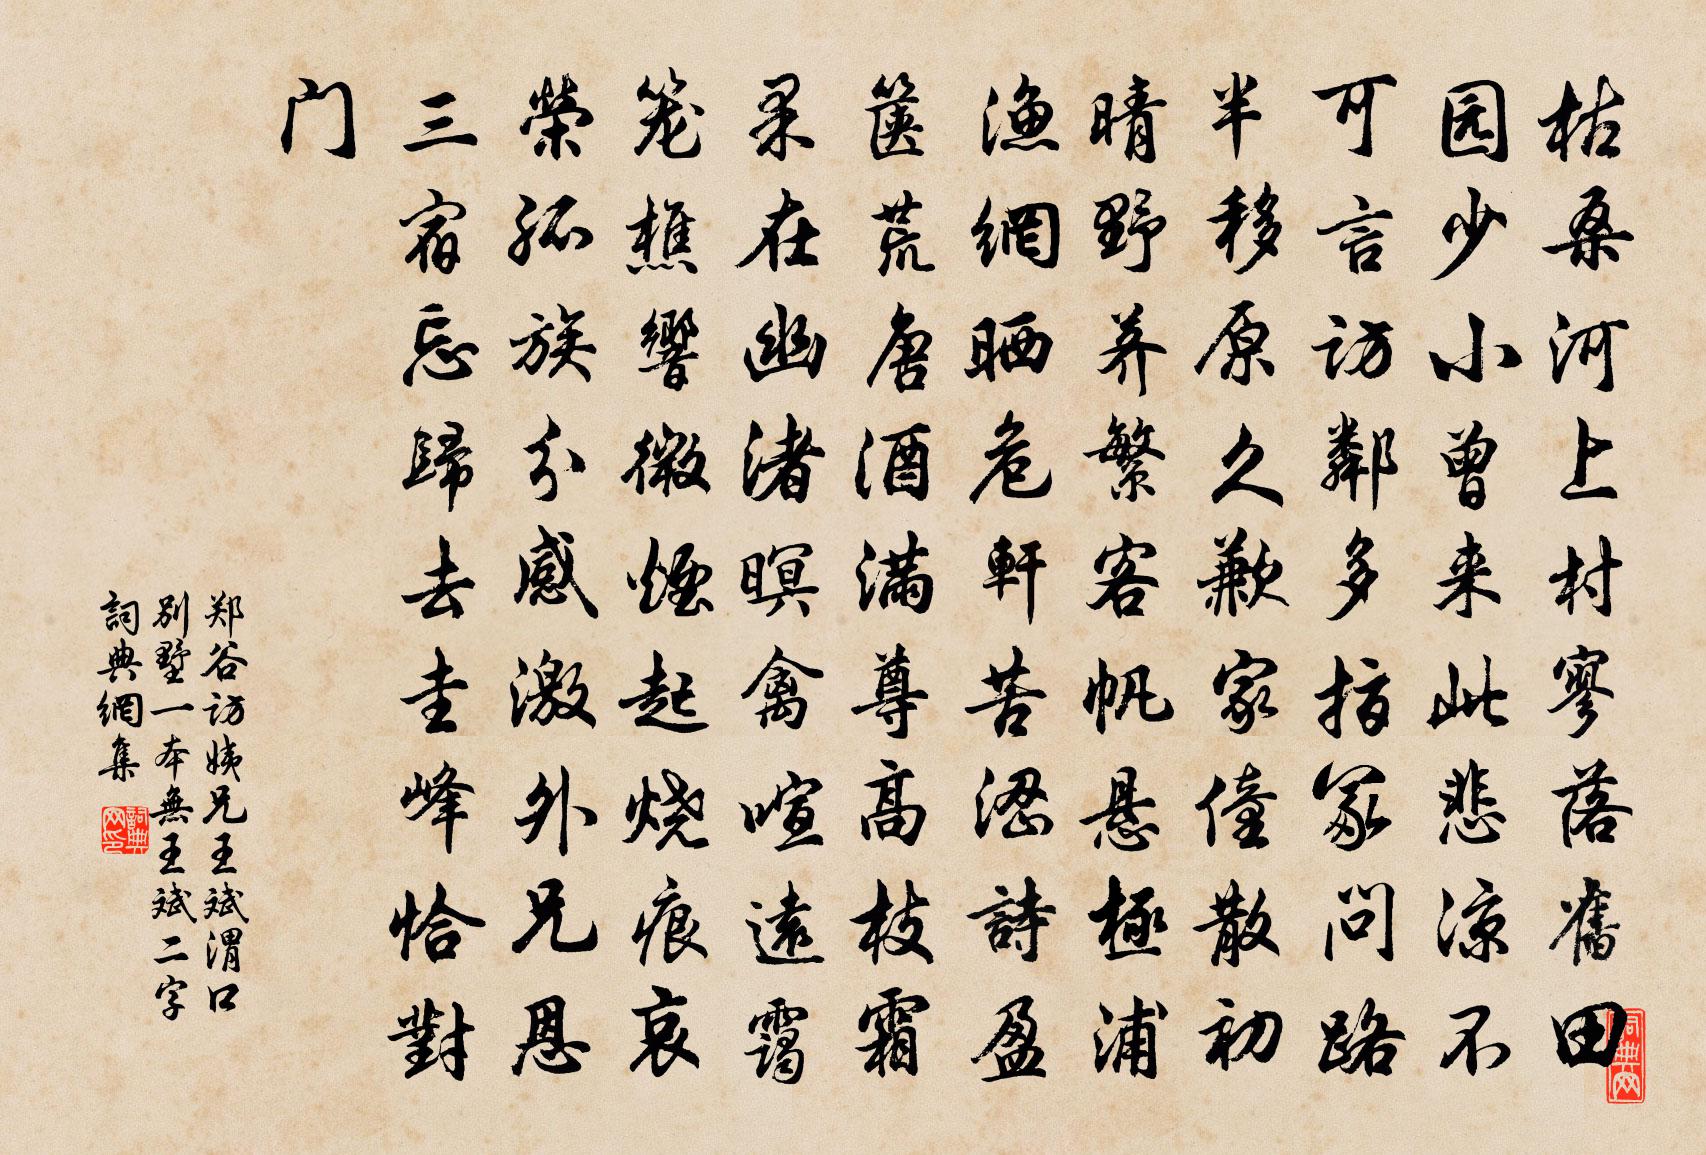 枯桑河上村寥落舊田
园少小曾来此悲凉不
可言访鄰多指冢问路
半移原久歉家僮散初
晴野荞繁客帆悬極浦
渔網晒危軒苦澀詩盈
箧荒唐酒满尊高枝霜
果在幽渚暝禽喧遠靄
笼樵響微煙起烧痕哀
榮孤族分感激外兄恩
三宿忘歸去圭峰恰對
门
郑谷访姨兄王斌渭口
别墅一本無王斌二字
詞典網集
詞典网印
詞典网